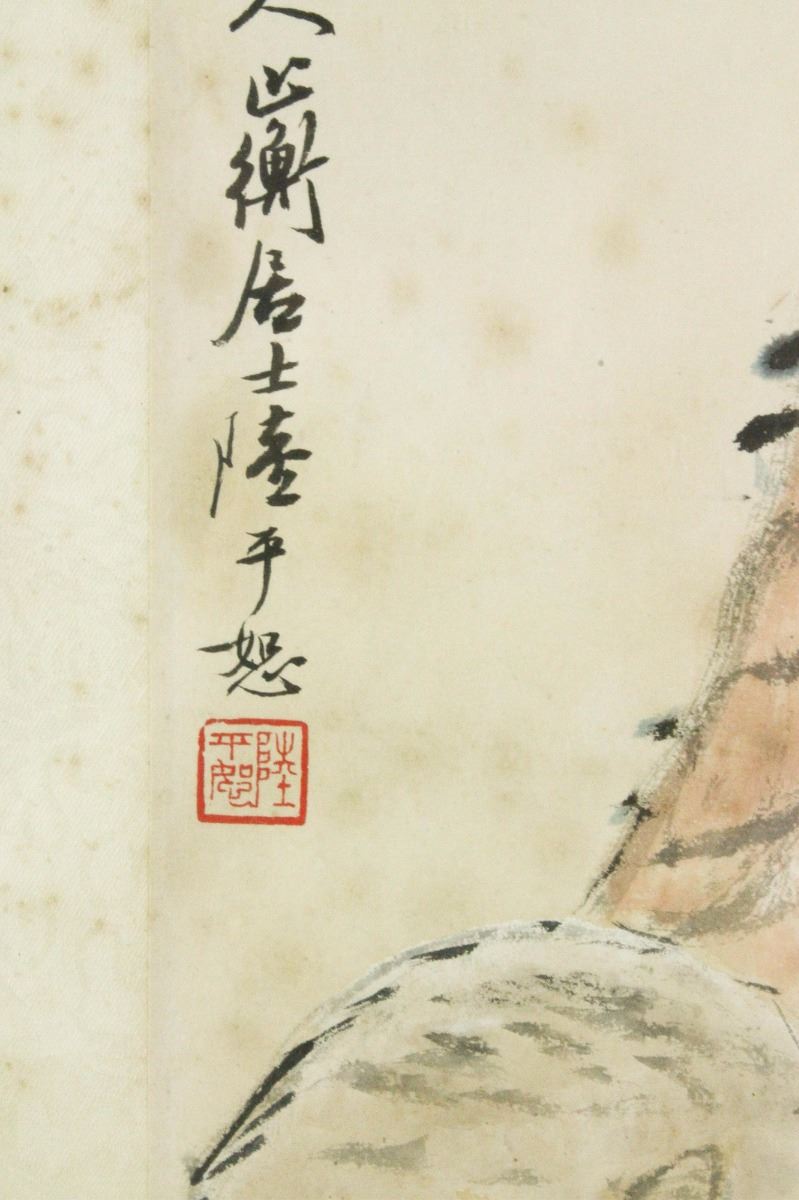 人止衡居士陸平恕
陸
平恕